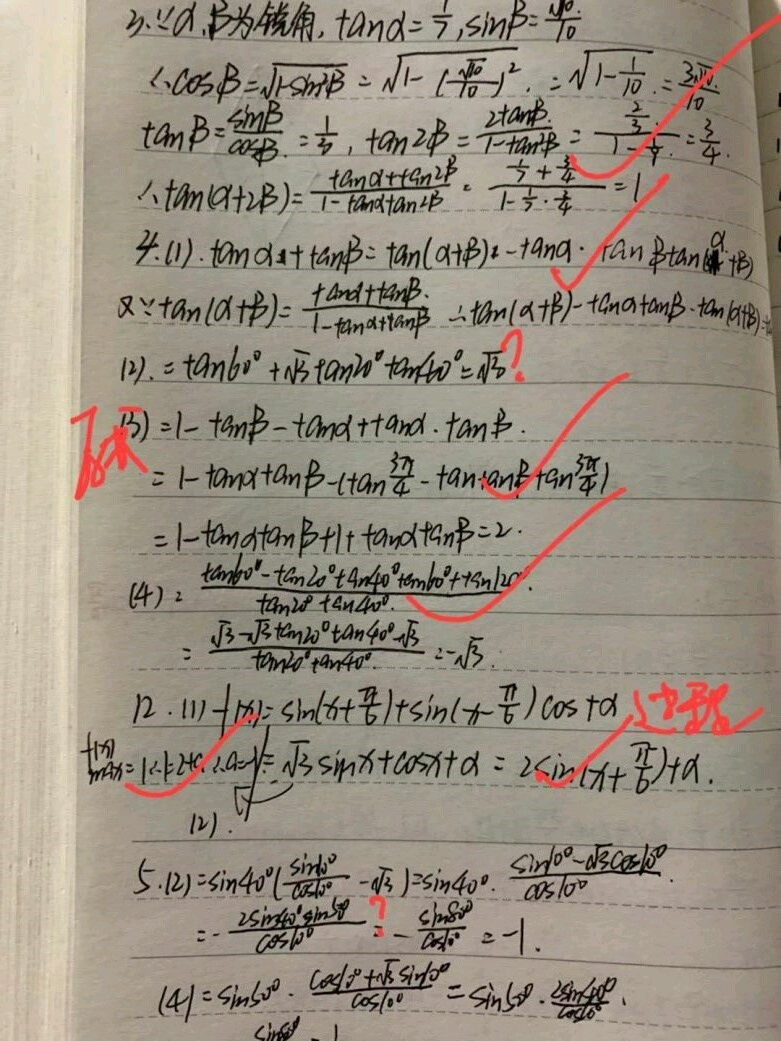 3.∵α,β为锐角,tanα=1/7,sinβ=√10/10
∴cosβ=√(1-sin²β)=√(1-(√10/10)²)=√(1-1/10)=3√10/10
tanβ=sinβ/cosβ=1/3,tan2β=2tanβ/(1-tan²β)=(2/3)/(1-1/9)=3/4.
∴tan(α+2β)=(tanα+tan2β)/(1-tanαtan2β)=(1/7+3/4)/(1-1/7·3/4)=1
4.(1).tanα+tanβ=tan(α+β)-tanα·tanβtan(α+β)
又∵tan(α+β)=(tanα+tanβ)/(1-tanαtanβ) ∴tan(α+β)-tanαtanβ·tan(α+β)=
(2).=tan60°+√3tan20°tan40°=√3 ?
(3)=1-tanβ-tanα+tanα·tanβ.
=1-tanαtanβ-(tan3π/4-tan·tanβtan3π/4)
=1-tanαtanβ+1+tanαtanβ=2.
(4)=(tan60°-tan20°tan40°tan60°+tan120°)/(tan20°tan40°).
=(√3-√3tan20°tan40°-√3)/(tan20°tan40°)=-√3.
12.(1)f(x)=sin(x+π/6)+sin(x-π/6)cos+α 过程
f(x)max=1∴1=2+a∴a=-1 =√3sinx+cosx+α=2sin(x+π/6)+α.
(2).
5.(2)=sin40°(sin10°/cos10°-√3)=sin40°·(sin10°-√3cos10°)/cos10°.
=-2sin40°sin50°/cos10° ? =-sin80°/cos10°=-1.
(4)=sin50°·(cos10°+√3sin10°)/cos10°=sin50°·2sin40°/cos10°.
sin80° =1